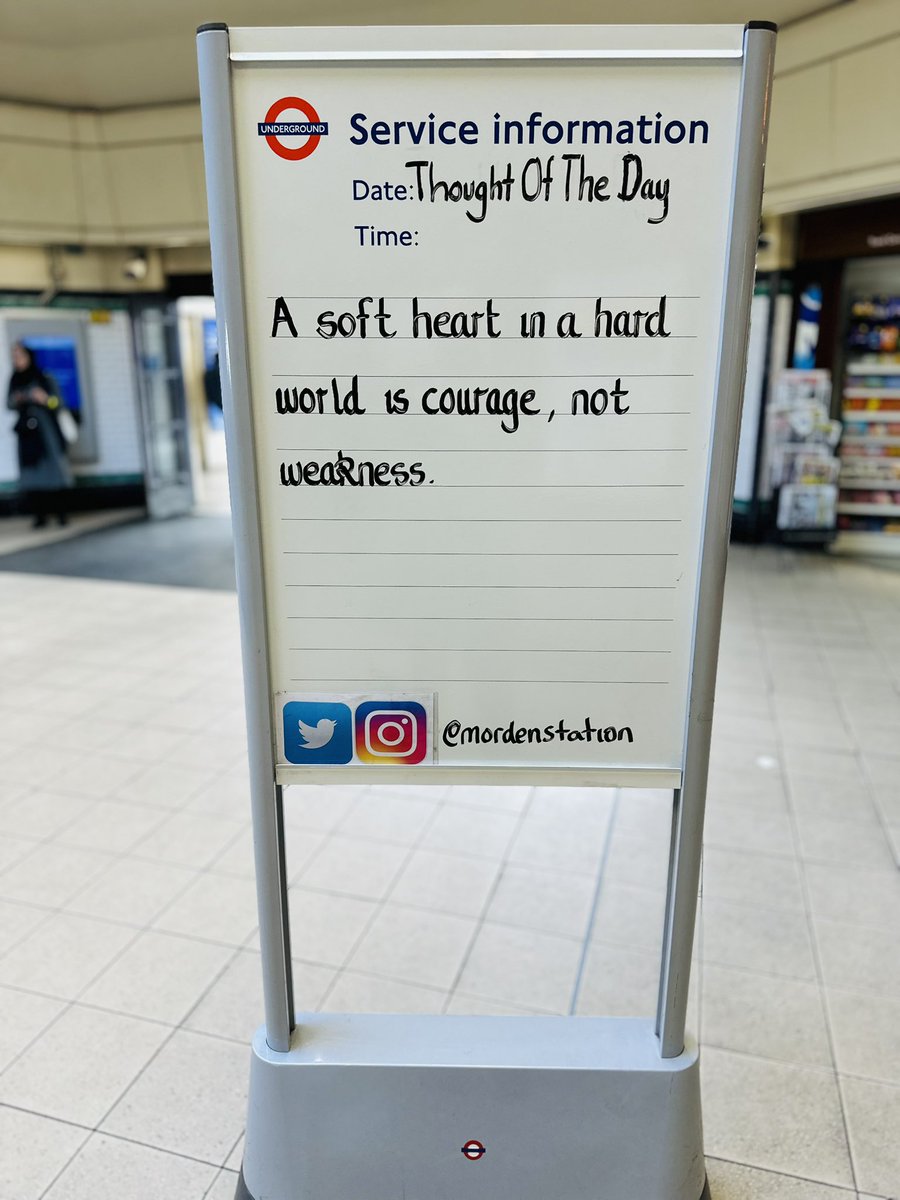 UNDERGROUND
Service information
Date: Thought Of The Day
Time:
A soft heart in a hard
world is courage, not
weakness.
@mordenstation